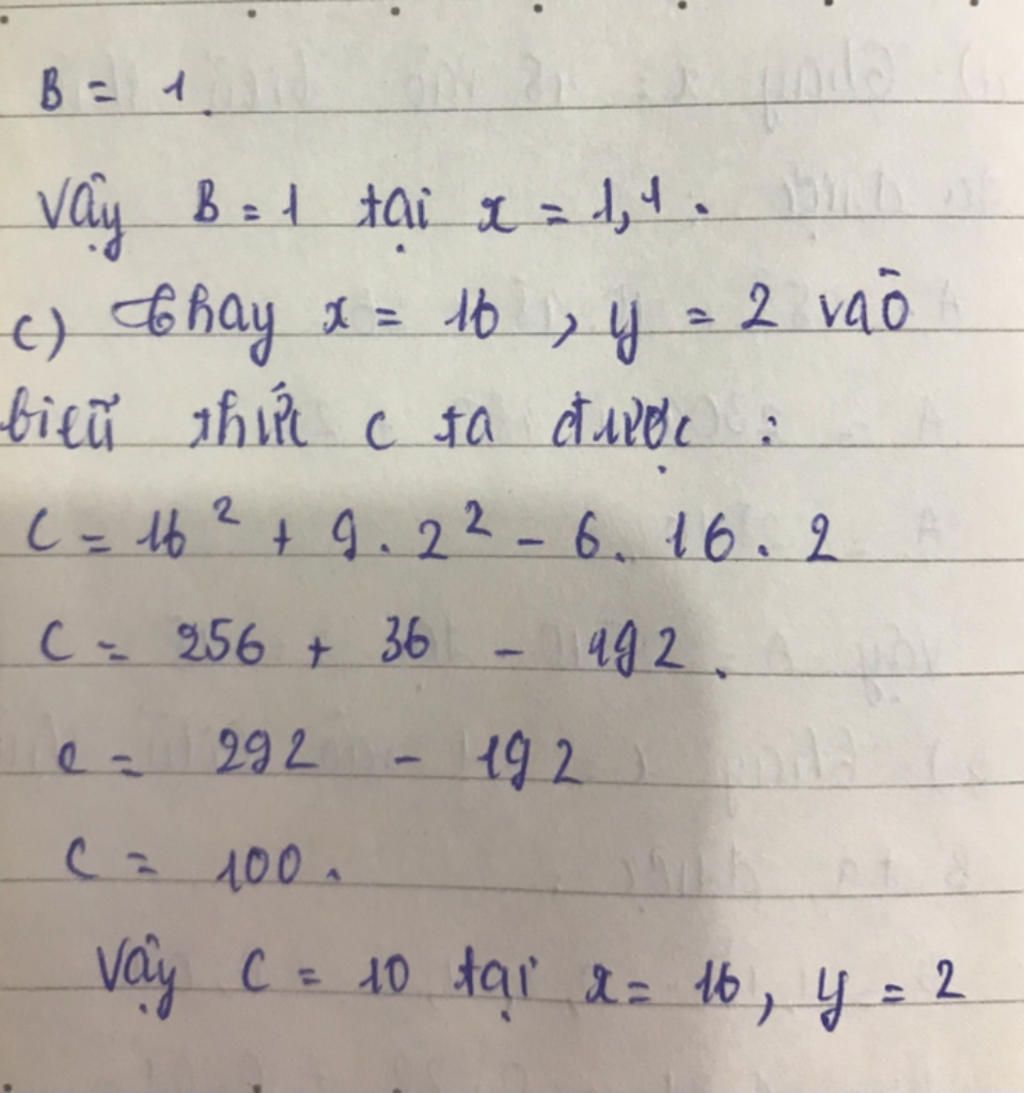 B = 1.
Vậy B = 1 tại x = 1,1.
c) Thay x = 16, y = 2 vào
biểu thức C ta được :
C = 16² + 9 . 2² - 6 . 16 . 2
C = 256 + 36 - 192.
C = 292 - 192
C = 100.
Vậy C = 10 tại x = 16, y = 2